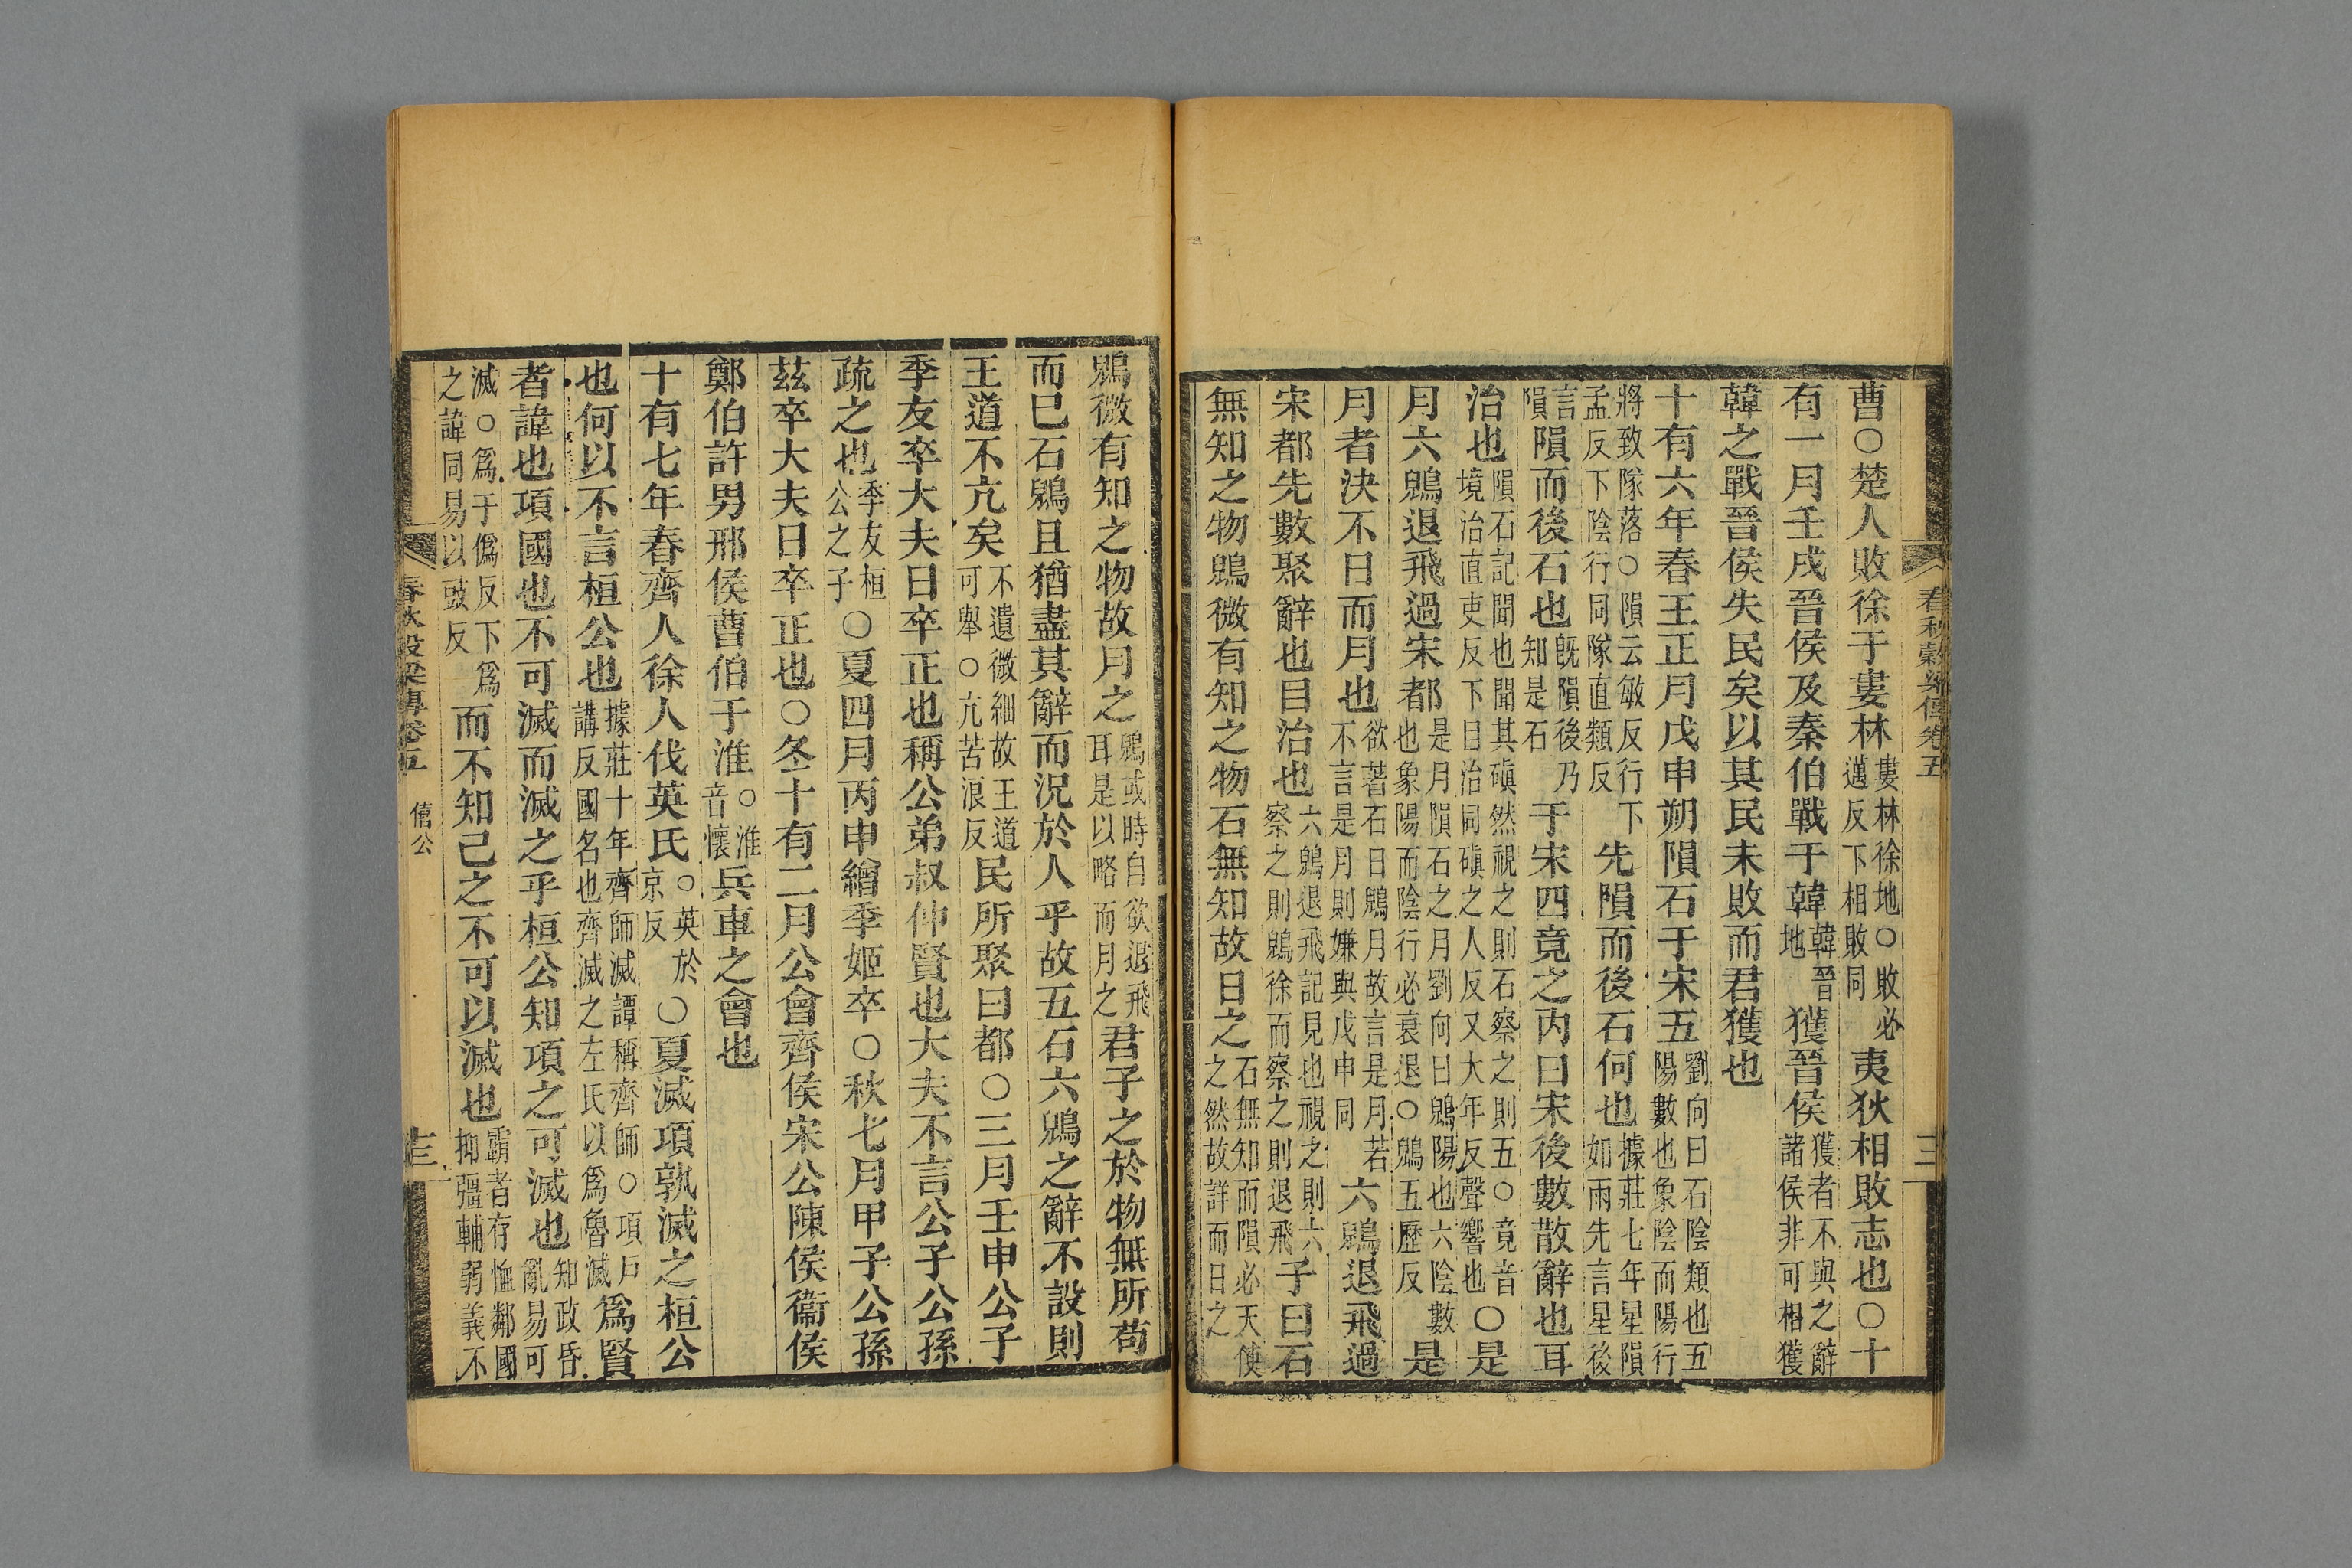 春秋穀梁傳卷五
曹○楚人敗徐于婁林婁林徐地○敗必邁反下相敗同夷狄相敗志也○十
有一月壬戌晉侯及秦伯戰于韓韓晉地獲晉侯獲者不與之辭諸侯非可相獲
韓之戰晉侯失民矣以其民未敗而君獲也
十有六年春王正月戊申朔隕石于宋五劉向曰石陰類也五陽數也象陰而陽行
將致隊落○隕云敏反行下孟反下陰行同隊直類反先隕而後石何也據莊七年星隕如雨先言星後
言隕隕而後石也旣隕後乃知是石于宋四竟之內曰宋後數散辭也耳
治也隕石記聞也聞其磌然視之則石察之則五○竟音境治直吏反下目治同磌之人反又大年反聲響也○是
月六鶂退飛過宋都是月隕石之月劉向曰鶂陽也六陰數也象陽而陰行必衰退○鶂五歷反是
月者決不日而月也欲著石日鶂月故言是月若不言是月則嫌與戊申同六鶂退飛過
宋都先數聚辭也目治也六鶂退飛記見也視之則六察之則鶂徐而察之則退飛子曰石
無知之物鶂微有知之物石無知故日之石無知而隕必天使之然故詳而日之
鶂微有知之物故月之鶂或時自欲退飛耳是以略而月之君子之於物無所苟
而已石鶂且猶盡其辭而況於人乎故五石六鶂之辭不設則
王道不亢矣不遺微細故王道可舉○亢苦浪反民所聚曰都○三月壬申公子
季友卒大夫日卒正也稱公弟叔仲賢也大夫不言公子公孫
疏之也季友桓公之子○夏四月丙申繒季姬卒○秋七月甲子公孫
茲卒大夫日卒正也○冬十有二月公會齊侯宋公陳侯衞侯
鄭伯許男邢侯曹伯于淮○淮音懷兵車之會也
十有七年春齊人徐人伐英氏○英於京反○夏滅項孰滅之桓公
也何以不言桓公也據莊十年齊師滅譚稱齊師○項戶講反國名也齊滅之左氏以爲魯滅爲賢
者諱也項國也不可滅而滅之乎桓公知項之可滅也知政昏亂易可
滅○爲于僞反下爲之諱同易以豉反而不知己之不可以滅也霸者存恤鄰國抑彊輔弱義不
春秋穀梁傳卷五
僖公